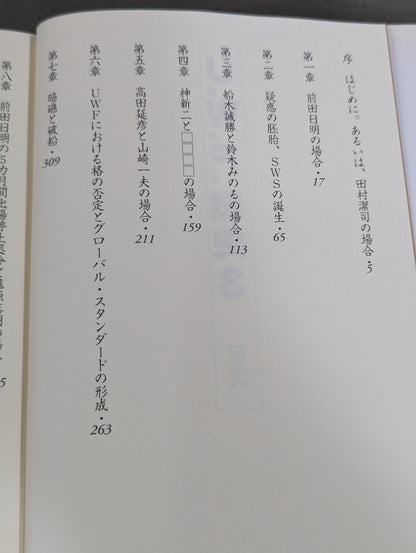 序　はじめに。あるいは、田村潔司の場合・5
第一章　前田日明の場合・17
第二章　疑惑の胚胎、SWSの誕生・65
第三章　船木誠勝と鈴木みのるの場合・113
第四章　神新二と□□□□の場合・159
第五章　高田延彦と山崎一夫の場合・211
第六章　UWFにおける格の否定とグローバル・スタンダードの形成・263
第七章　暗礁と破船・309
第八章　前田日明の5カ月間出場停止処分と